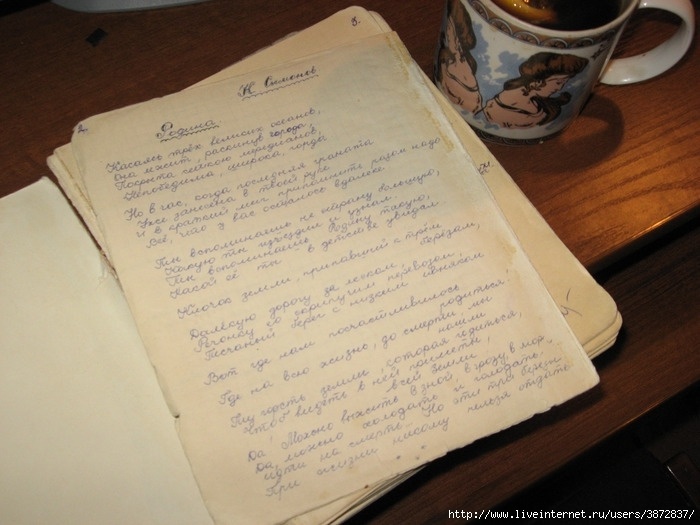 5.
2.
К Симонов
Родина.
Касаясь трёх великих океанов,
Она лежит, раскинув города,
Покрыта сеткою меридианов,
Непобедима, широка, горда
Но в час, когда последняя граната
Уже занесена в твоей руке
И в краткий миг припомнить разом надо
Всё, что у вас осталось вдалеке.
Ты вспоминаешь не страну большую,
Какую ты изъездил и узнал
Ты вспоминаешь Родину такую,
Какой её ты в детстве увидал
Клочок земли, припавший к трём
берёзам,
Далёкую дорогу за леском,
Речонку со скрипучим перевозом,
Песчаный берег с низким ивняком
Вот где нам посчастливилось
родиться,
Где на всю жизнь, до смерти, мы
нашли
Ту горсть земли, которая годиться,
Чтоб видеть в ней приметы,
всей земли
Да! Можно выжить в зной, в грозу, в мор.
Да, можно холодать и голодать,
Идти на смерть... Но эти три берёзы
При жизни никому нельзя отдать
http://www.liveinternet.ru/users/3872837/